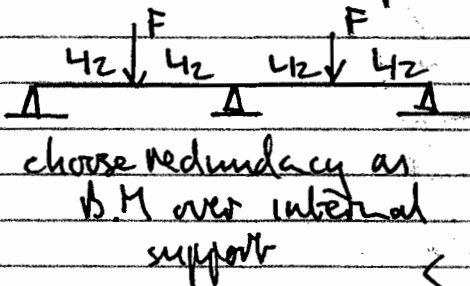 F F
L/2 L/2 L/2 L/2
choose redundacy as
B.M over internal
support